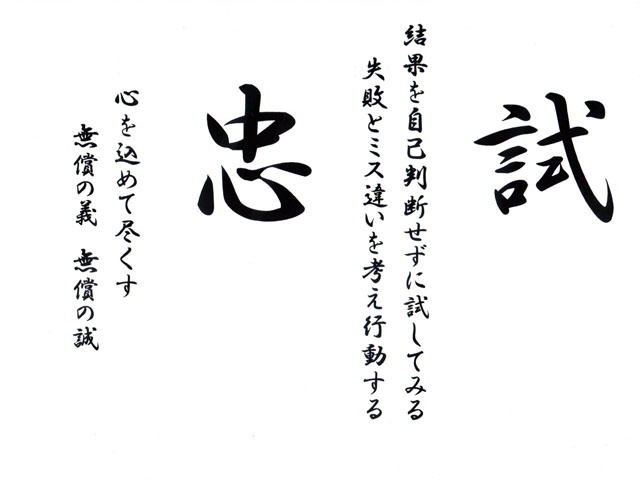 試
結果を自己判断せずに試してみる
失敗とミス違いを考え行動する
忠
心を込めて尽くす
無償の義　無償の誠